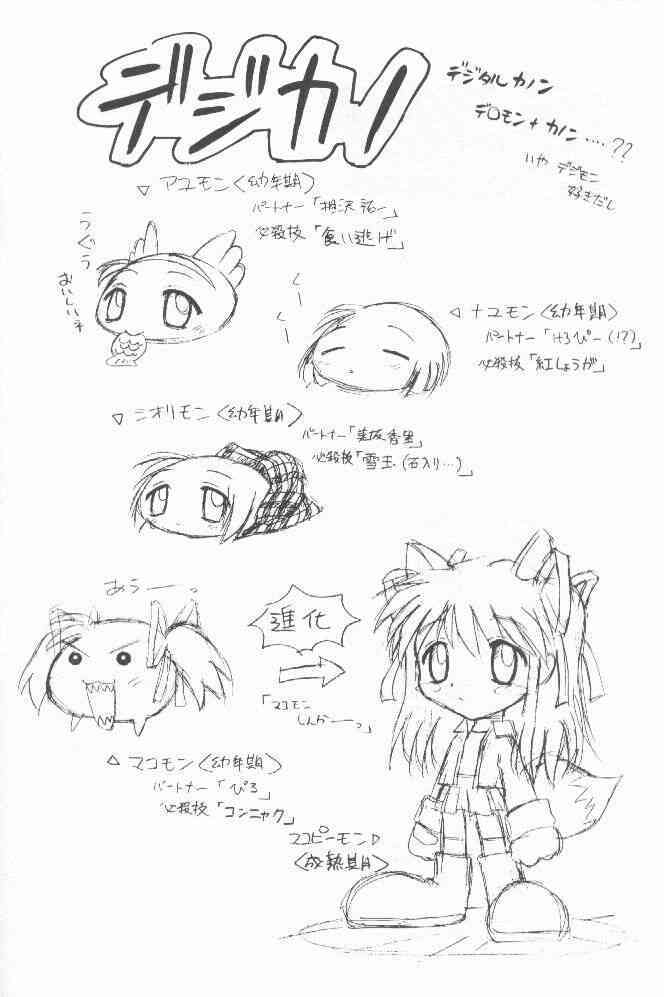 デジカノ
デジタル カノン
デ○モン+カノン‥‥??
いや デジモン
好きだし
▽ アユモン〈幼年期〉
パートナー「相沢祐一」
必殺技「食い逃げ」
うぐぅ
おいしいネ
くー
くー
◁ ナユモン〈幼年期〉
パートナー「けろぴー(!?)」
必殺技「紅しょうが」
▽ シオリモン〈幼年期〉
パートナー「美坂香里」
必殺技「雪玉(石入り…)」
あぅーーっ
進化
「マコモン
しんかーーっ」
△ マコモン〈幼年期〉
パートナー「ぴろ」
必殺技「コンニャク」
マコピーモン▷
〈成熟期〉